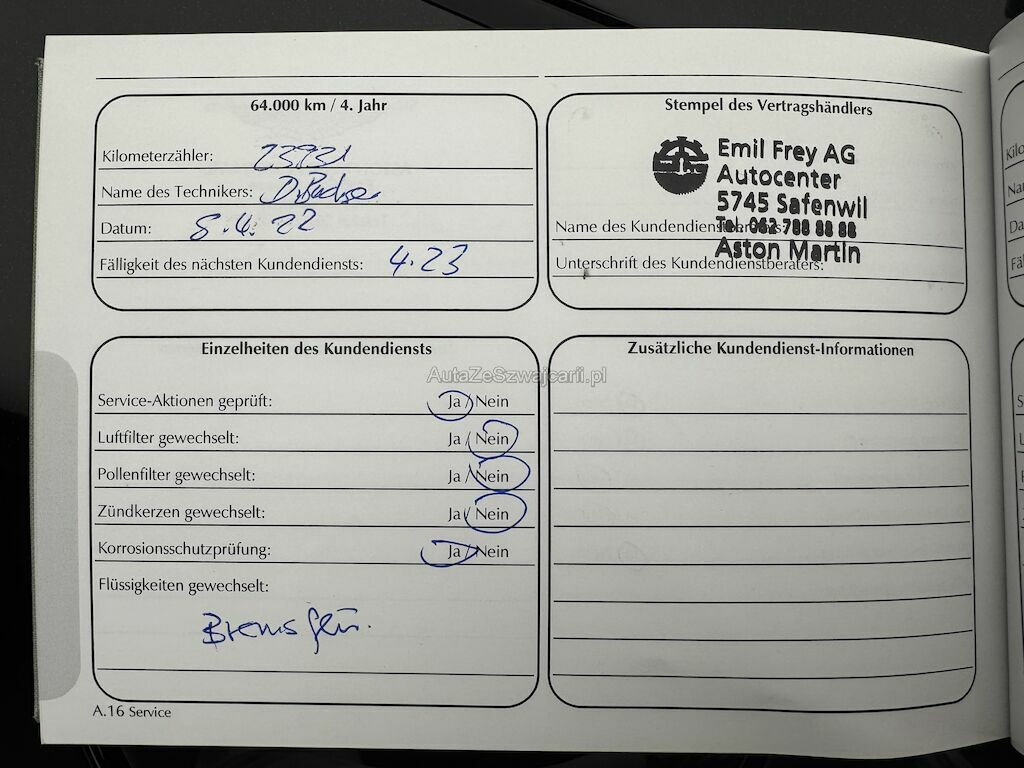 64.000 km / 4. Jahr
Kilometerzähler: 23931
Name des Technikers:
Datum: 8.4.22
Fälligkeit des nächsten Kundendiensts: 4.23
Stempel des Vertragshändlers
Emil Frey AG
Autocenter
5745 Safenwil
Tel. 062 788 88 88
Name des Kundendienstberaters:
Aston Martin
Unterschrift des Kundendienstberaters:
Einzelheiten des Kundendiensts
Service-Aktionen geprüft: Ja / Nein
Luftfilter gewechselt: Ja / Nein
Pollenfilter gewechselt: Ja / Nein
Zündkerzen gewechselt: Ja / Nein
Korrosionsschutzprüfung: Ja / Nein
Flüssigkeiten gewechselt:
Bremsflü.
Zusätzliche Kundendienst-Informationen
AutaZeSzwajcarii.pl
A.16 Service